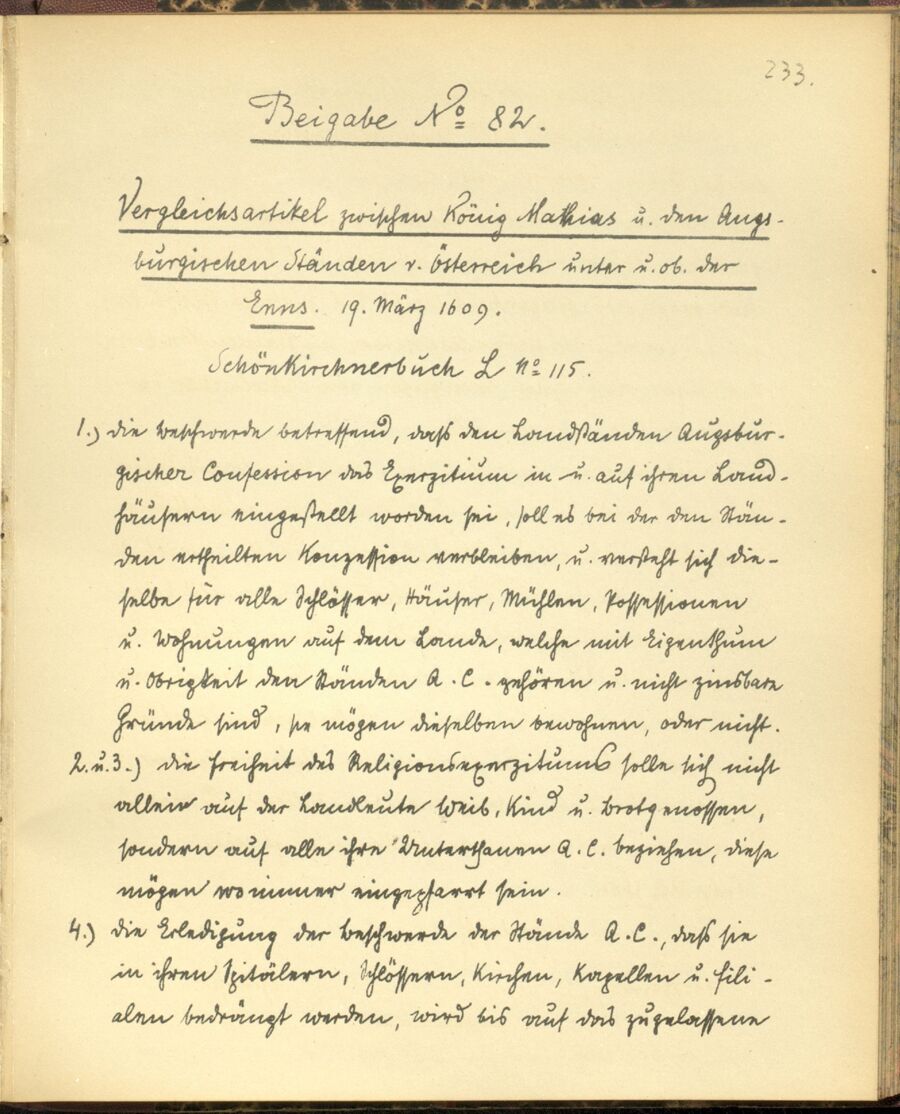 233.
Beigabe No 82.
Vergleichsartikel zwischen König Mathias u. den Augs-
burgischen Ständen v. Österreich unter u. ob. der
Enns. 19. März 1609.
Schönkirchnerbuch L No 115.
1.) die Beschwerde betreffend, dass den Landständen Augsbur-
gischer Confession das Exerzitium in u. auf ihren Land-
häusern eingestellt worden sei, soll es bei der den Stän-
den ertheilten Konzession verbleiben, u. versteht sich die-
selbe für alle Schlösser, Häuser, Mühlen, Possessionen
u. Wohnungen auf dem Lande, welche mit Eigenthum
u. Obrigkeit den Ständen A. C. gehören u. nicht zinsbare
Gründe sind, sie mögen dieselben bewohnen, oder nicht.
2. u. 3.) die Freiheit des Religionsexerzitums solle sich nicht
allein auf der Landleute Weib, Kind u. Brotgenossen,
sondern auf alle ihre Unterthanen A. C. beziehen, diese
mögen wo immer eingepfarrt sein.
4.) die Erledigung der Beschwerde der Stände A. C., dass sie
in ihren Spitälern, Schlössern, Kirchen, Kapellen u. Fili-
alen bedrängt werden, wird bis auf das zugelassene